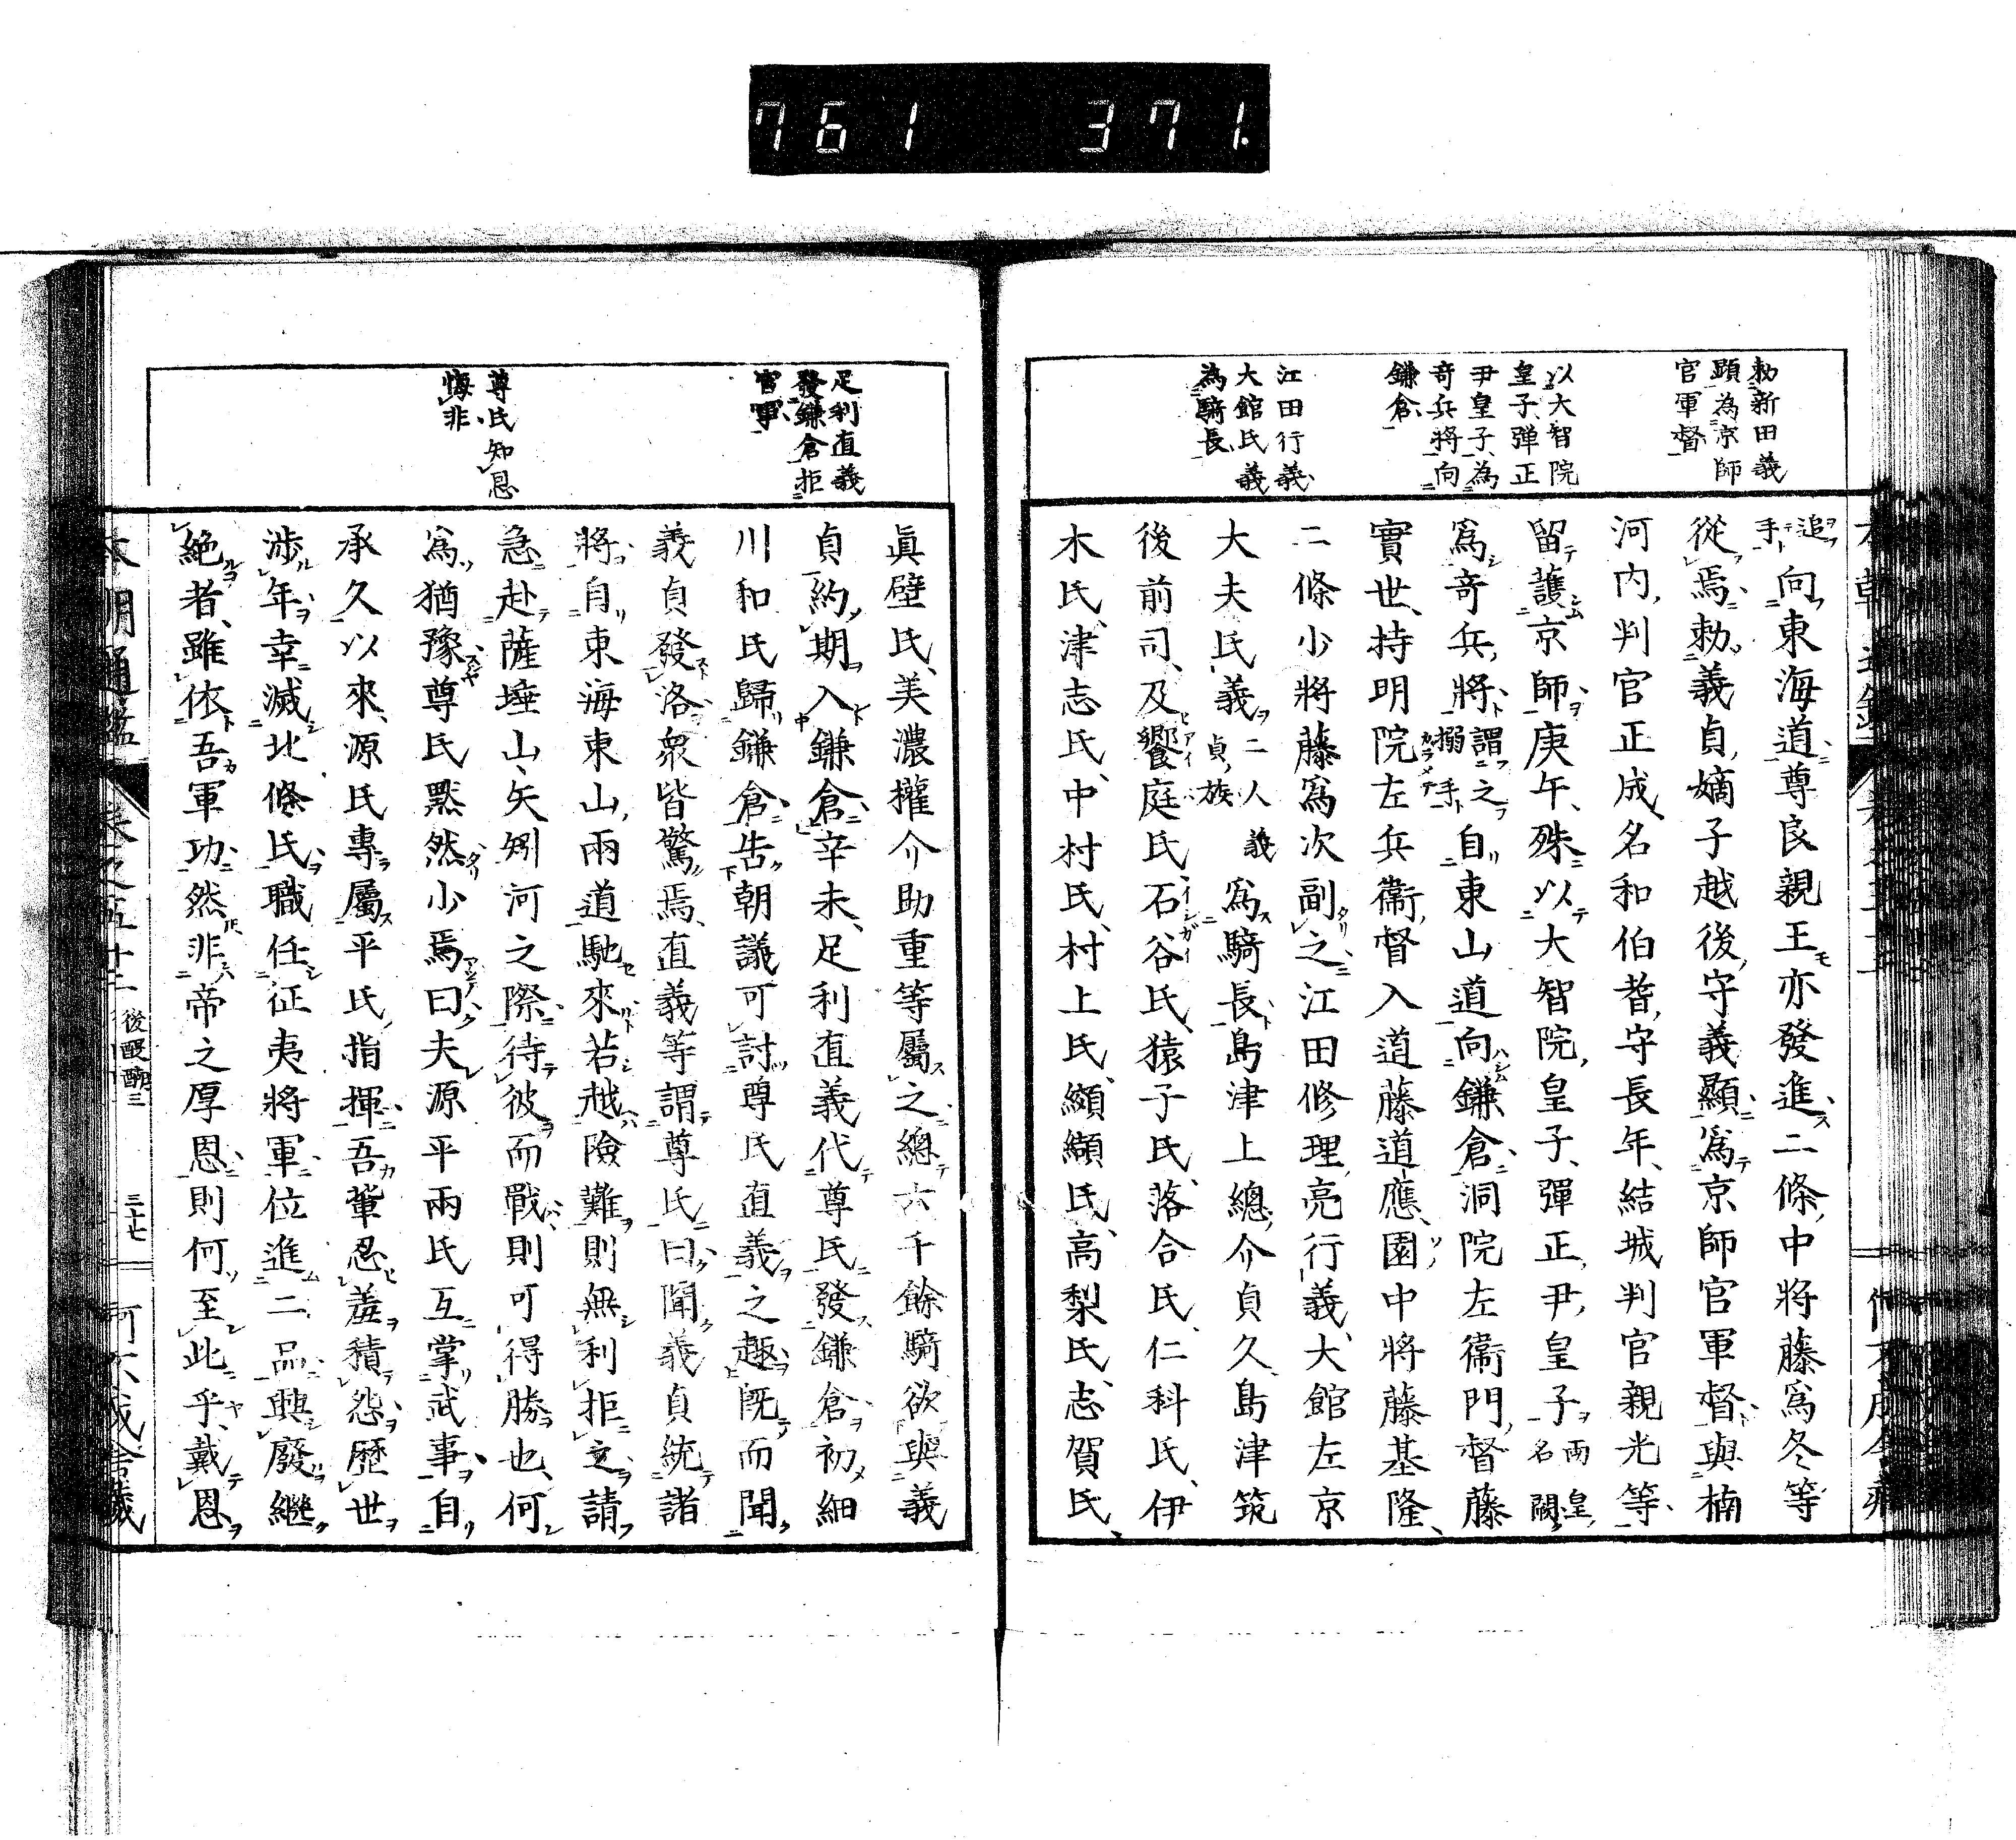 761 371.
勅新田義
顕為京師
官軍督
以大智院
皇子彈正
尹皇子為
奇兵將向
鎌倉
江田行義
大館氏義
為騎長
追手向東海道尊良親王亦發進二條中將藤爲冬等
從焉勅義貞嫡子越後守義顯爲京師官軍督與楠
河内判官正成名和伯耆守長年結城判官親光等
留護京師庚午殊以大智院皇子彈正尹皇子兩皇名闕
爲奇兵將謂之搦手自東山道向鎌倉洞院左衞門督藤
實世持明院左兵衞督入道藤道應園中將藤基隆
二條少將藤爲次副之江田修理亮行義大館左京
大夫氏義二人義貞族爲騎長島津上總介貞久島津筑
後前司及饗庭氏石谷氏猿子氏落合氏仁科氏伊
木氏津志氏中村氏村上氏纐纈氏高梨氏志賀氏
足利直義
發鎌倉拒
官軍
尊氏知恩
悔非
眞壁氏美濃權介助重等屬之總六千餘騎欲與義
貞約期入鎌倉辛未足利直義代尊氏發鎌倉初細
川和氏歸鎌倉告朝議可討尊氏直義之趣既而聞
義貞發洛衆皆驚焉直義等謂尊氏曰聞義貞統諸
將自東海東山兩道馳來若越險難則無利拒之請
急赴薩埵山矢矧河之際待彼而戰則可得勝也何
爲猶豫尊氏默然少焉曰夫源平兩氏互掌武事自
承久以來源氏專屬平氏指揮吾輩忍羞積怨歴世
渉年幸滅北條氏職任征夷將軍位進二品興廢繼
絶者雖依吾軍功然非帝之厚恩則何至此乎戴恩
本朝通鑑 卷之五十二 後醍醐三 三十七